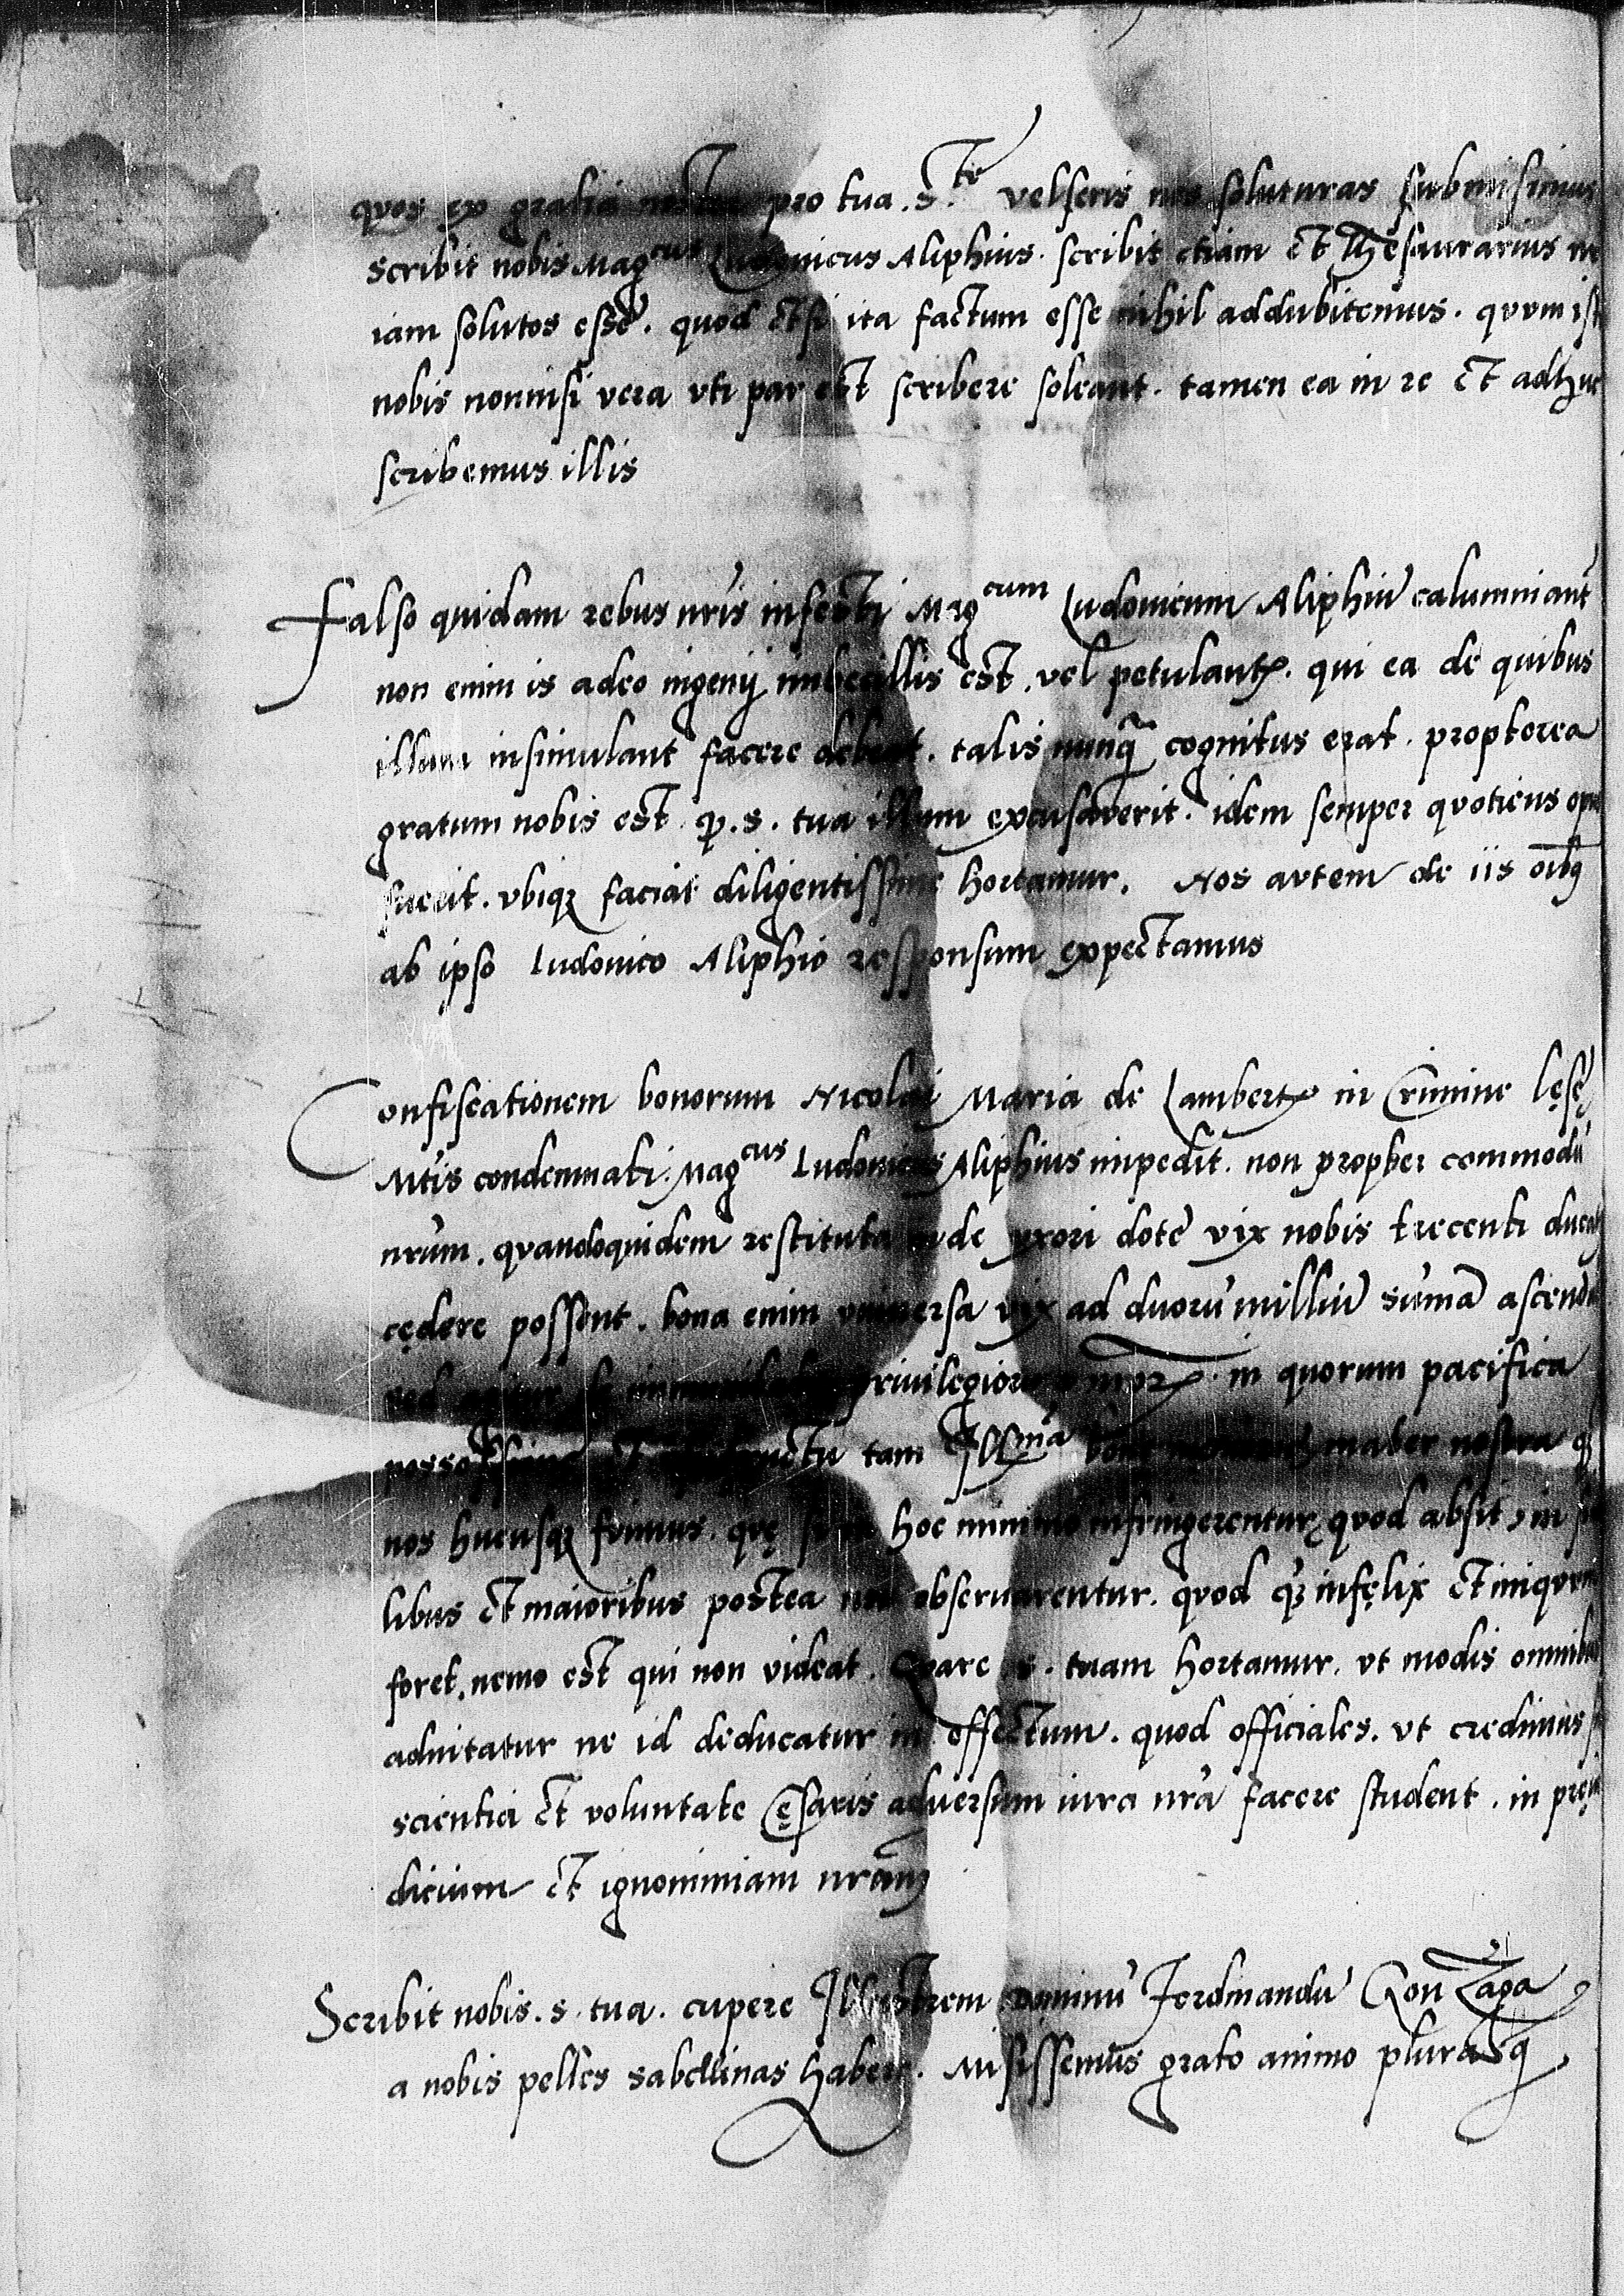 quos ex gratia nostra pro tua .S.te velseris nos soluturas submisimus
scribit nobis Magcus Ludouicus Aliphius. scribit etiam et Thesaurarius
iam solutos esse. quod etsi ita factum esse nihil addubitemus. quum
nobis nonnisi vera vti par est scribere soleant. tamen ea in re et adhuc
scribemus illis
Falso quidam rebus nris infesti Magcum Ludouicum Aliphiu calumniant
non enim is adeo ingenij imbecillis est. vel petulantis. qui ea de quibus
illum insimulant facere debeat. talis nunq̃ cognitus erat. propterea
gratum nobis est q. s. tua illum excusauerit. idem semper quoties
fuerit. vbiq facias diligentissime hortamur. Nos autem de iis oibus
ab ipso Ludouico Aliphio responsum expectamus
Confiscationem bonorum Nicolai Maria de Lambertis in Crimine lęsę
Mtis condemnati. Magcus Ludouicus Aliphius impedit. non propter commodu
nrum. quandoquidem restituta inde vxori dote vix nobis trecenti
cędere possent. bona enim vniuersa vix ad duoru milliu suma
priuilegioru in quorum pacifica
tam Illma mater nostra
nos hucusq fuimus. quę hoc minimo infringerentur, quod absit, in
libus et maioribus postea non obseruarentur. quod q infęlix et iniquum
foret. nemo est qui non videat. Quare s. tuam hortamur. vt modis omnibus
adnitatur ne id deducatur in effectum. quod officiales. vt credimus
scientia et voluntate Cęsaris aduersum iura nra facere student. in
dicium et ignominiam nram
Scribit nobis. s. tua. cupere Illustrem dominu Ferdinandu Gonzaga
a nobis pelles sabellinas habere. Misissemus grato animo plurasq